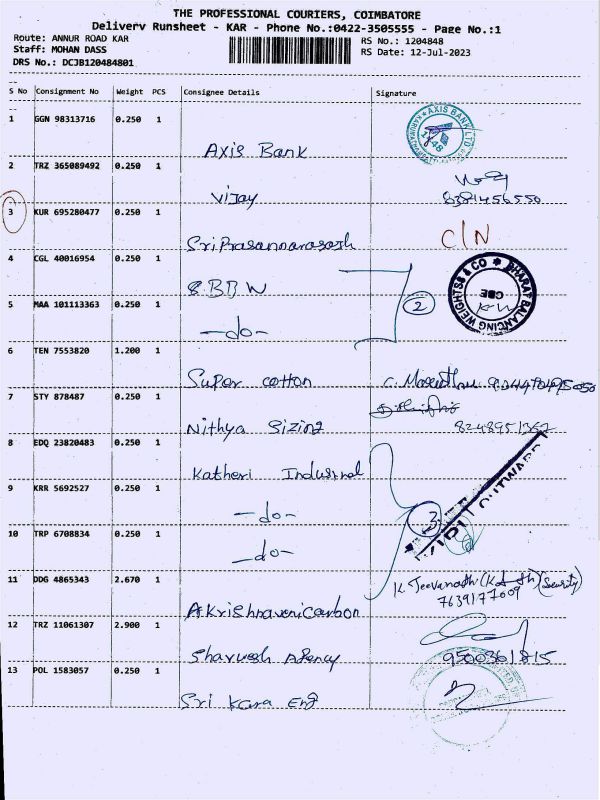 THE PROFESSIONAL COURIERS, COIMBATORE
Delivery Runsheet - KAR - Phone No.:0422-3505555 - Page No.:1
Route: ANNUR ROAD KAR
Staff: MOHAN DASS
DRS No.: DCJB120484801
RS No.: 1204848
RS Date: 12-Jul-2023
S No Consignment No Weight PCS Consignee Details Signature
1 GGN 98313716 0.250 1 Axis Bank
AXIS BANK LTD
2 TRZ 365089492 0.250 1 Vijay
8381456550
3 KUR 695280477 0.250 1 Sri Prasannarasash C/N
4 CGL 40016954 0.250 1 S.BBW
BHARAT BALANCING WEIGHTS & CO
CBE
2
5 MAA 101113363 0.250 1 -do-
6 TEN 7553820 1.200 1 Super cotton
7 STY 878487 0.250 1 Nithya Sizing
8248951362
8 EDQ 23820483 0.250 1 Katheri Industrial
9 KRR 5692527 0.250 1 -do-
3
OUTWARD
10 TRP 6708834 0.250 1 -do-
11 DDG 4865343 2.670 1 A.Krishnaveni carbon
K. Jeevanath (Security)
7639177009
12 TRZ 11061307 2.900 1 Sharvesh Agency
9500361815
13 POL 1583057 0.250 1 Sri Kara Eng